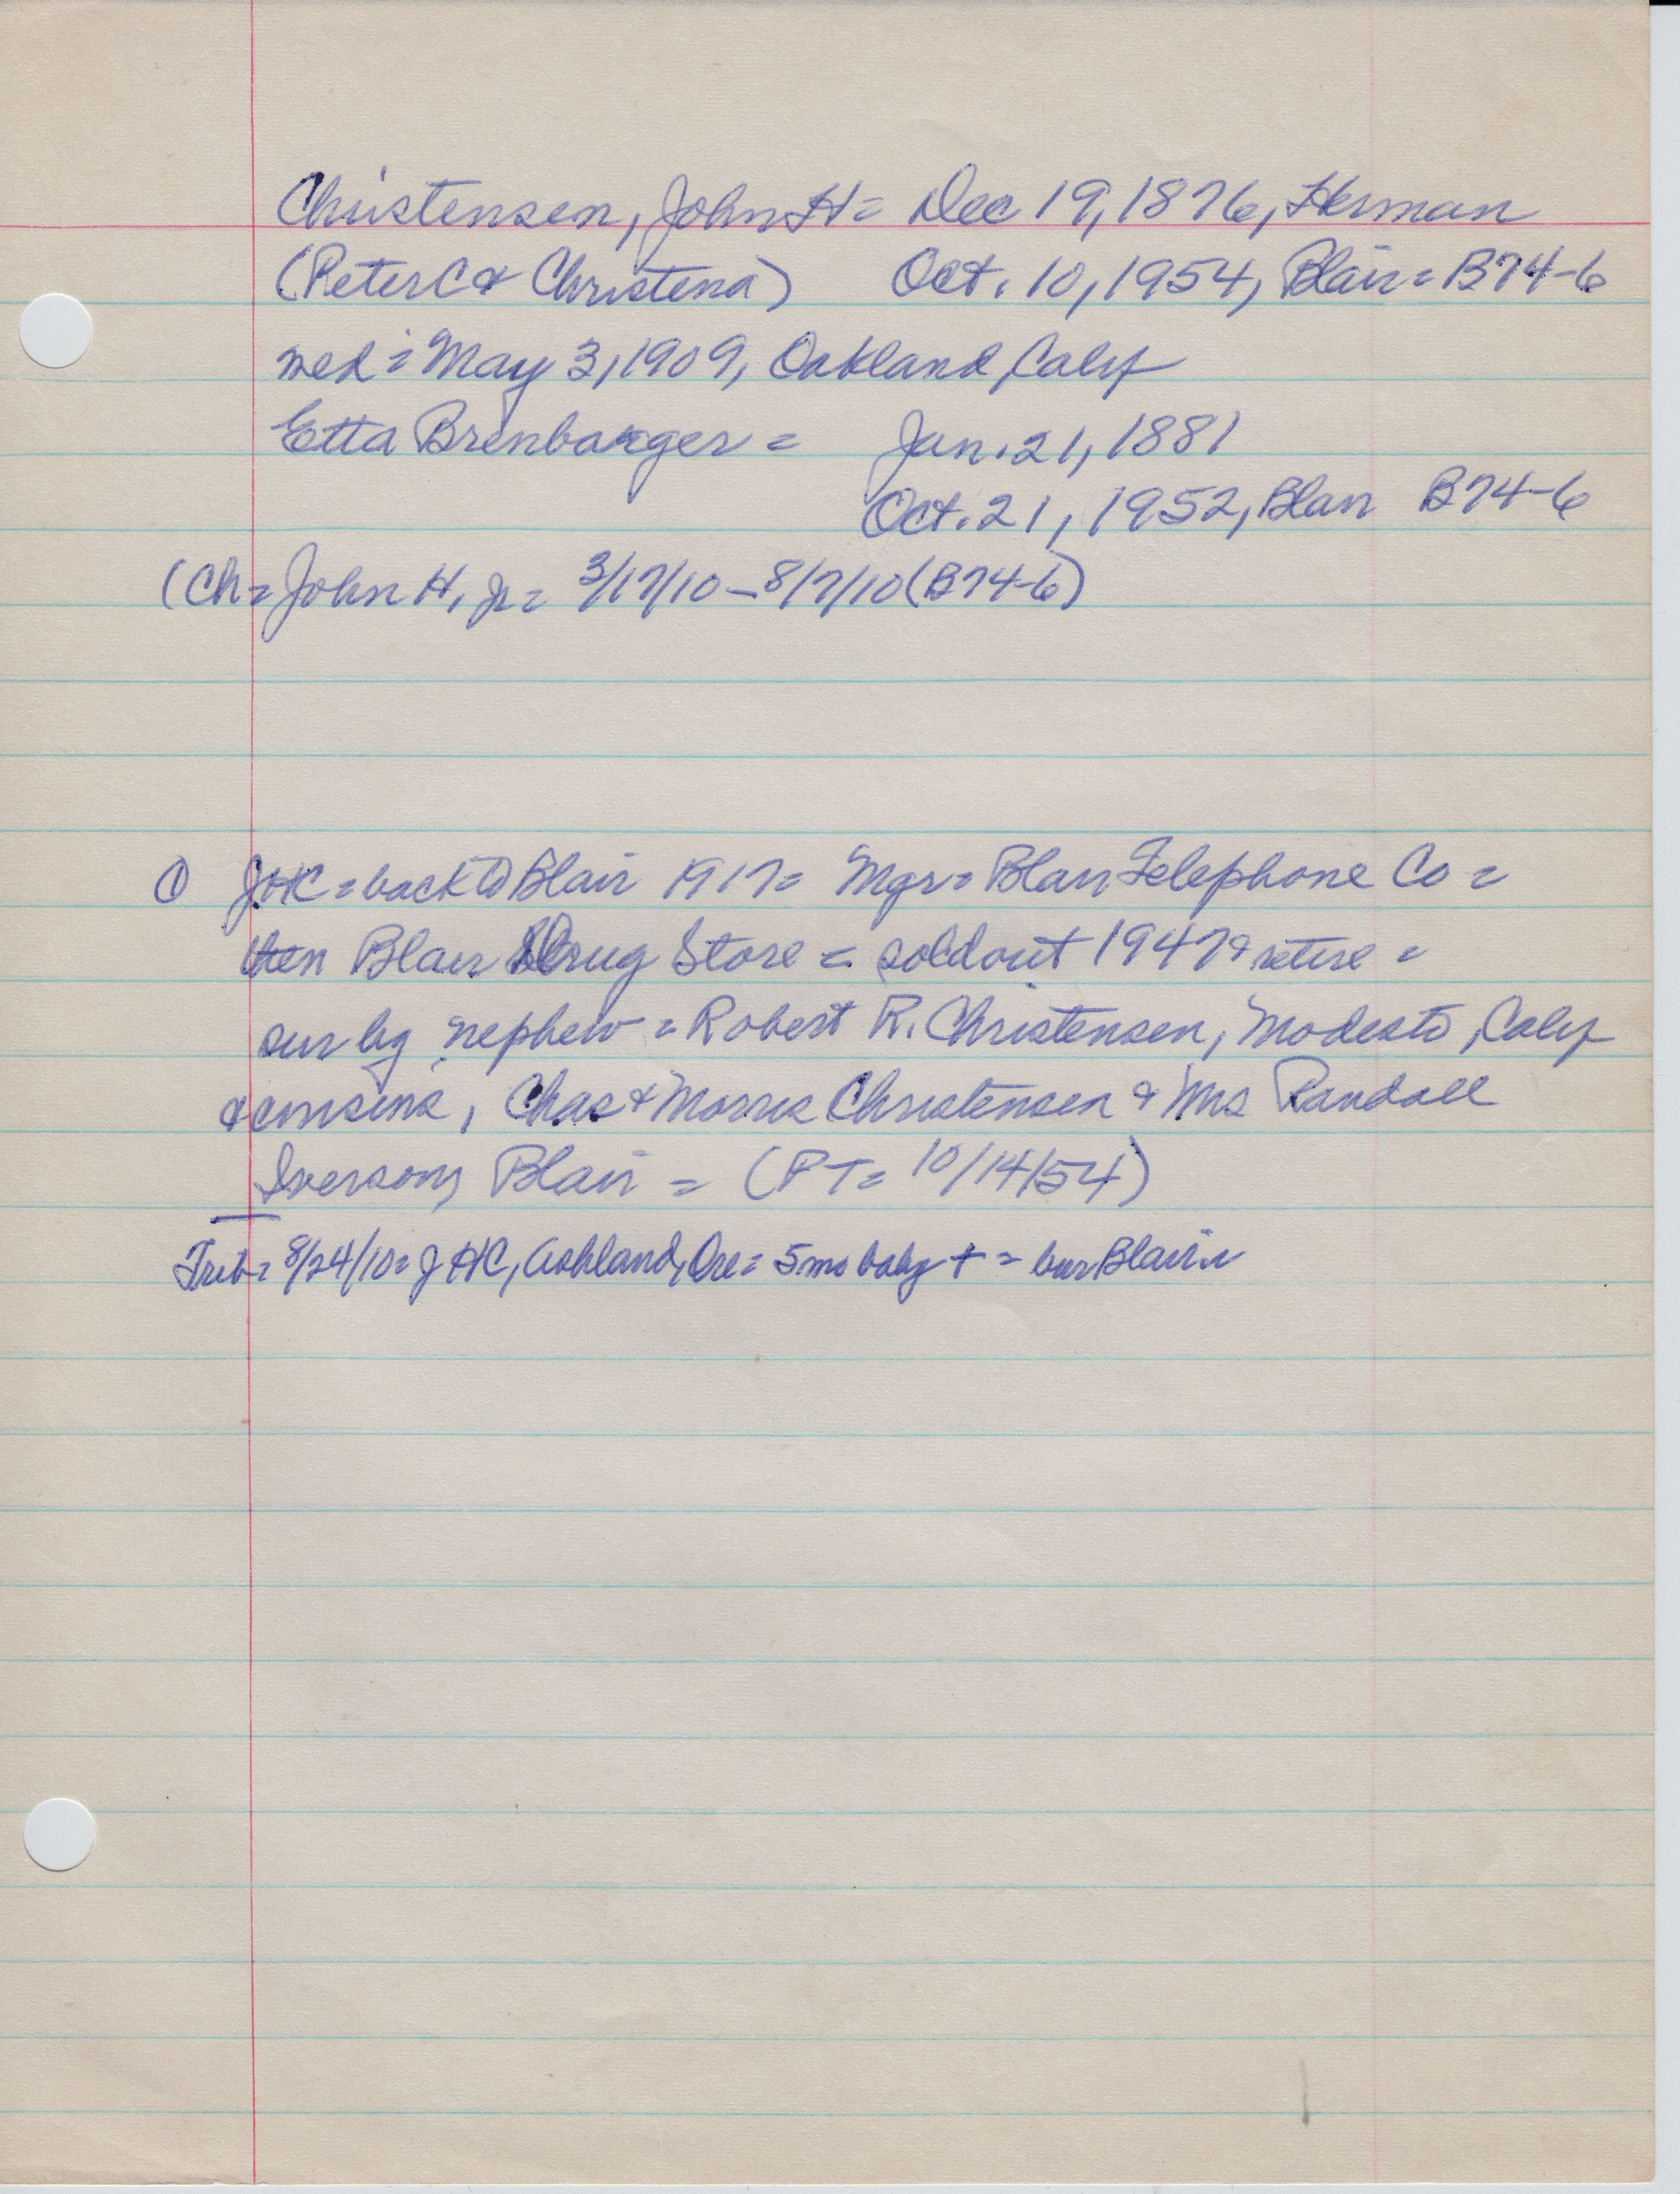 Christensen, John H = Dec 19, 1876, Herman
(Peter C & Christena) Oct. 10, 1954, Blair = B74-6
wed = May 3, 1909, Oakland, Calif
Etta Brenbarger = Jan. 21, 1881
Oct. 21, 1952, Blair B74-6
(Ch = John H, Jr = 3/17/10 - 8/7/10 (B74-6)
① JHC = back to Blair 1917 = Mgr = Blair Telephone Co =
then Blair Drug Store = sold out 1947 & retire =
sur by nephew = Robert R. Christensen, Modesto, Calif
& cousins, Chas & Morris Christensen & Mrs Randall
Iverson, Blair = (PT = 10/14/54)
Trib = 8/24/10 = J HC, Ashland, Ore = 5 mo baby + = bur Blair